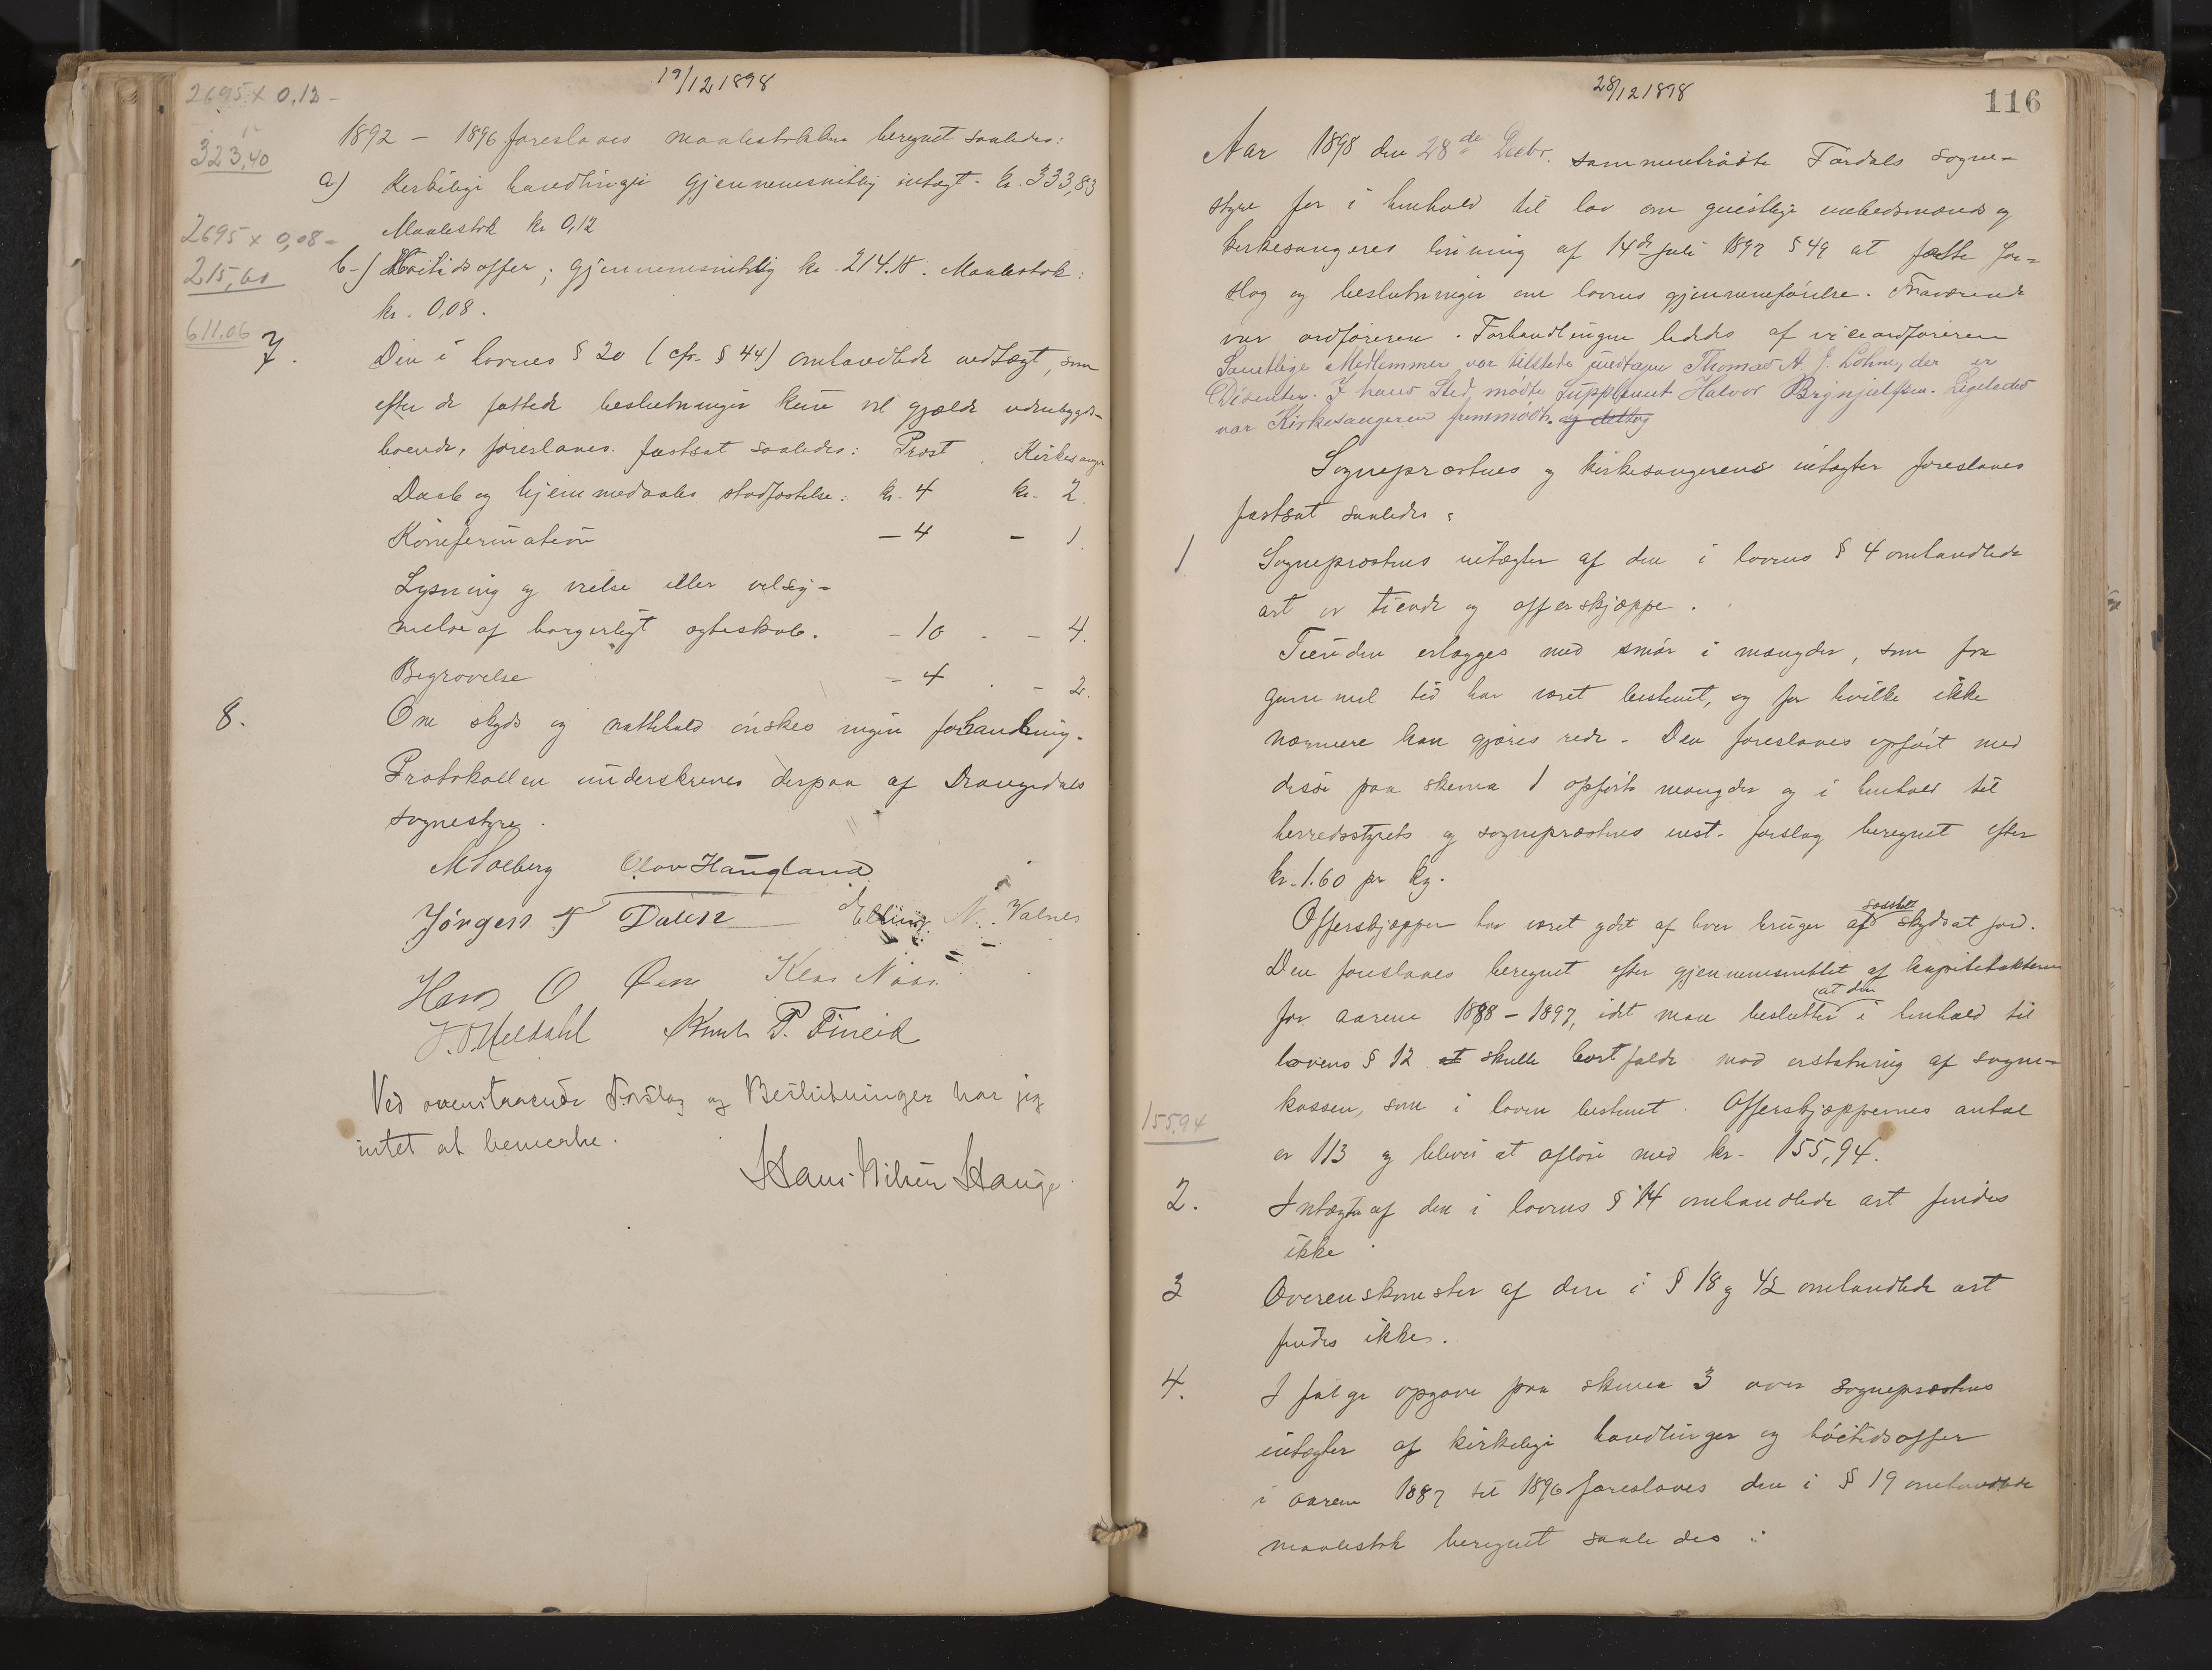 19/12 1898
2695 x 0,12 -
323,40
1892 - 1896 foreslaaes maalestokken beregnet saaledes:
a) Kirkelige handlinger gjennemsnitlig indtægt - kr. 333,83
Maalestok kr 0,12
2695 x 0,08 -
215,60
b-) Høitidsoffer; gjennemsnitlig kr. 214.18. Maalestok:
kr. 0,08.
611.06
7. Den i lovens § 20 (cfr. § 44) omhandlede vedtægt, som
efter de fattede beslutninger kun vil gjælde udenbygds-
boende, foreslaaes fastsat saaledes: Prest. Kirkesanger
Daab og hjemmedaabs stadfæstelse: kr. 4 kr. 2.
Konfermation - 4 - 1.
Lysning og vielse eller velsig-
nelse af borgerligt egteskab. - 10 - 4.
Begravelse - 4 - 2.
8. Om skyds og nattehold ønskes ingen forhandling.
Protokollen underskrives derpaa af Drangedals
sognestyre.
M Solberg Olav Haugland
Jörgen T Dalen Elling N. Valnes
Hans O Öine Klas Näss
J. O. Meldahl Knut P. Fineid
Ved ovenstaaende Forslag og Beslutninger har jeg
intet at bemerke.
Hans Nilsen Hauge
28/12 1898
116
Aar 1898 den 28de Decbr. sammentraadte Tørdals sogne-
styre for i henhold til lov om geistlige embedsmænds og
kirkesangeres lønning af 14de juli 1897 § 49 at fatte for-
slag og beslutninger om lovens gjennemførelse. Fraværende
var ordføreren. Forhandlingen lededes af viceordføreren
Samtlige Medlemmer var tilstede undtagen Thomas A. J. Lohne, der er
Disenter. I hans Sted mødte Suppleant Halvor Brynjulfsen. Ligeledes
var Kirkesangeren fremmødt. og deltog
Sogneprestens og kirkesangerens indtægter foreslaaes
fastsat saaledes:
1 Sogneprestens indtægter af den i lovens § 4 omhandlede
art er tiende og offerskjæppe.
Tienden erlægges med smør i mængder, som fra
gammel tid har været bestemt, og for hvilke ikke
nærmere kan gjøres rede. Den foreslaaes opført med
disse paa skema 1 opførte mængder og i henhold til
herredsstyrets og sogneprestens enst. forslag beregnet efter
kr. 1.60 pr kg.
Offerskjæppen har været ydet af hver bruger af særskilt skyldsat jord.
Den foreslaaes beregnet efter gjennemsnittet af kapitelstaksterne
for aarene 1888 - 1897, idet man beslutter at den i henhold til
lovens § 12 at skulle bortfalde mod erstatning af sogne-
kassen, som i loven bestemt. Offerskjæppernes antal
155.94
er 113 og bliver at afløse med kr. 155,94.
2. Indtægter af den i lovens § 14 omhandlede art findes
ikke
3 Overenskomster af den i § 18 og 42 omhandlede art
findes ikke.
4. Ifølge opgave paa skema 3 over sogneprestens
indtægter af kirkelige handlinger og høitidsoffer
i aarene 1887 til 1896 foreslaaes den i § 19 omhandlede
maalestok beregnet saaledes: